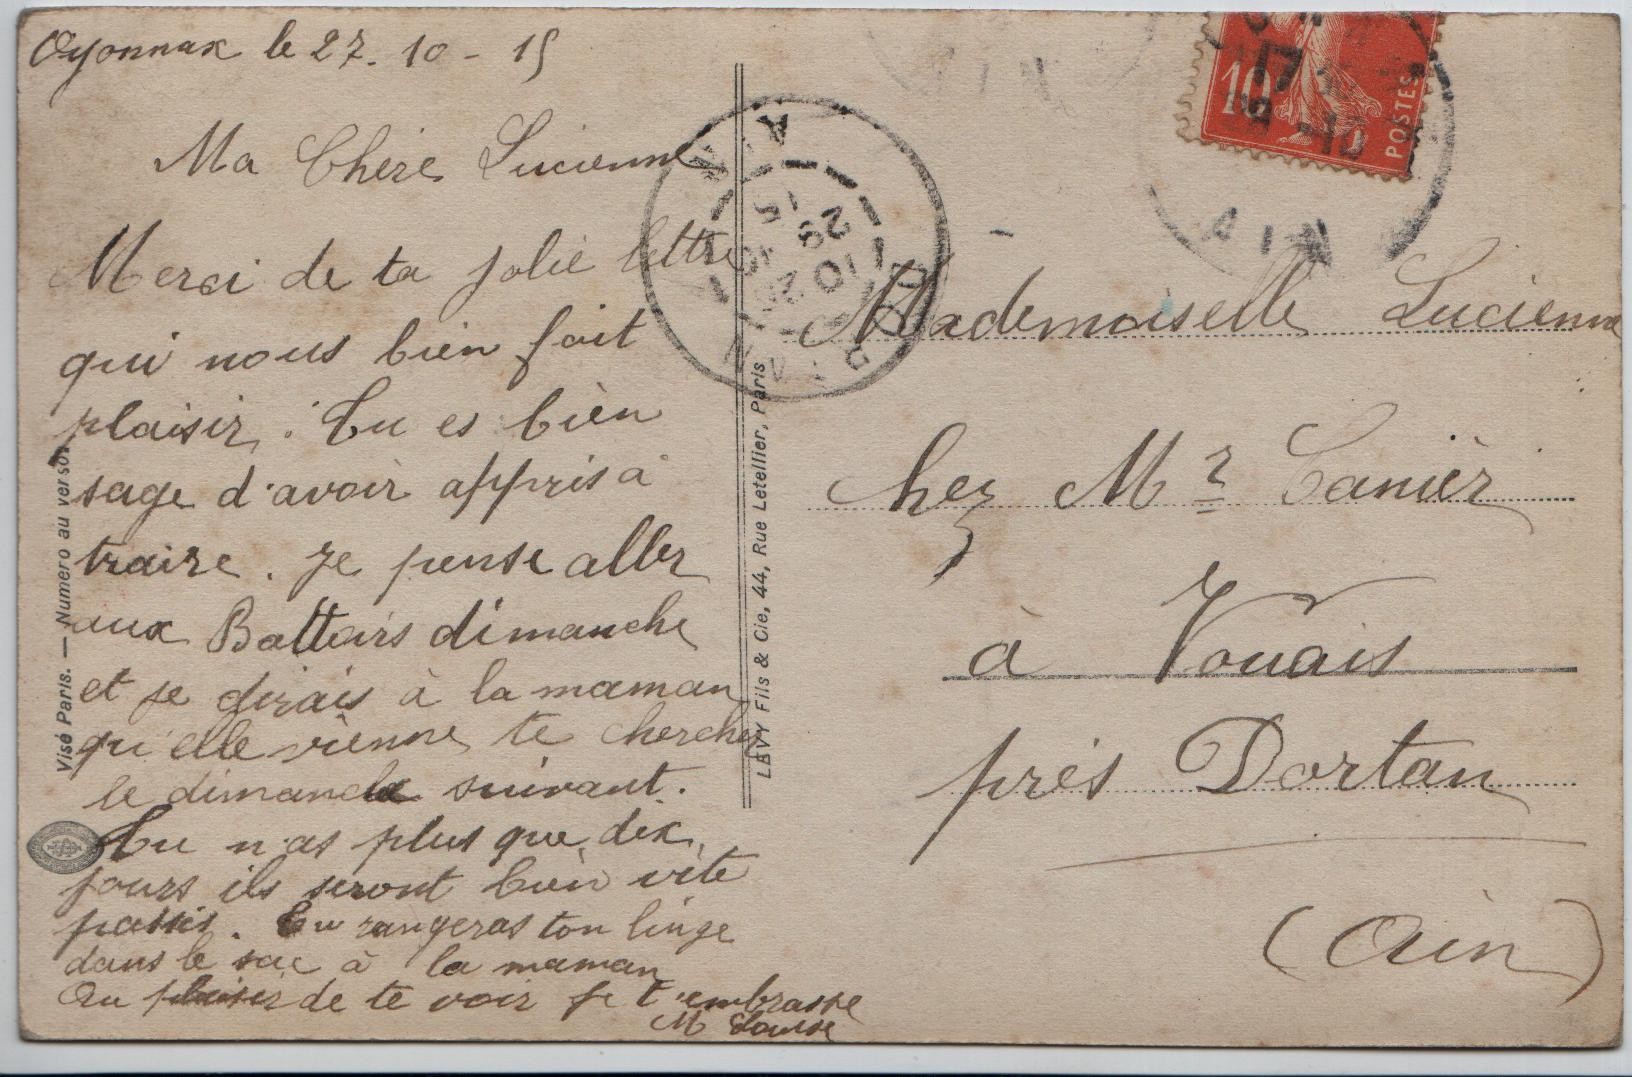 Oyonnax le 27. 10 - 15
Ma Chère Lucienne
Merci de ta jolie lettre
qui nous bien fait
plaisir. Tu es bien
sage d'avoir appris à
traire. Je pense aller
aux Battoirs dimanche
et je dirais à la maman
qu'elle vienne te chercher
le dimanche suivant.
Tu n'as plus que dix
jours ils seront bien vite
passés. Tu rangeras ton linge
dans le sac à la maman
Au plaisir de te voir je t'embrasse
M
Visé Paris. — Numero au verso.
LEVY Fils & Cie, 44, Rue Letellier, Paris
AIN
DORTAN
15
29
10
10
POSTES
AIN
AIN
Mademoiselle Lucienne
chez Mr
à Vouais
près Dortan
(Ain)